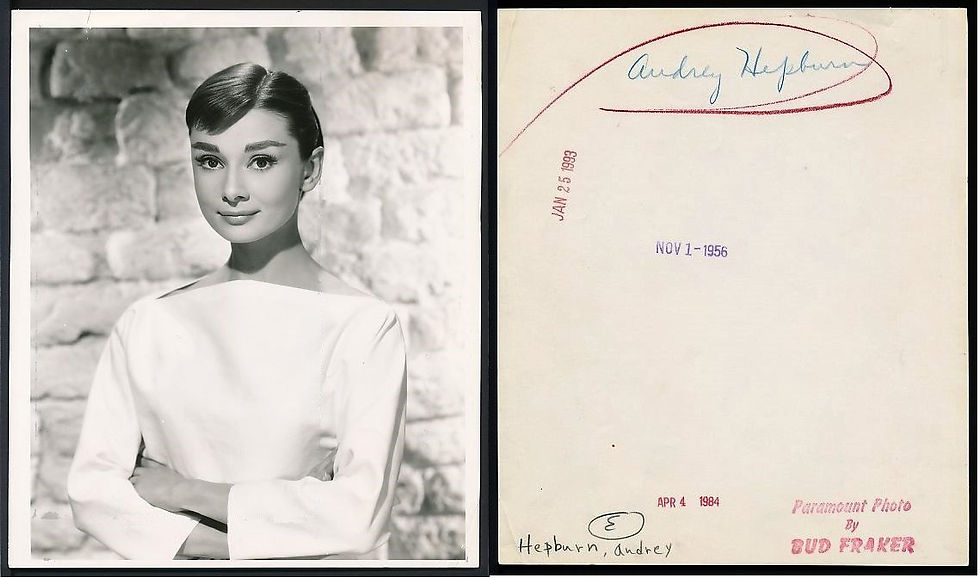 Audrey Hepburn
JAN 25 1993
NOV 1-1956
APR 4 1984
Paramount Photo
By
BUD FRAKER
E
Hepburn, Audrey